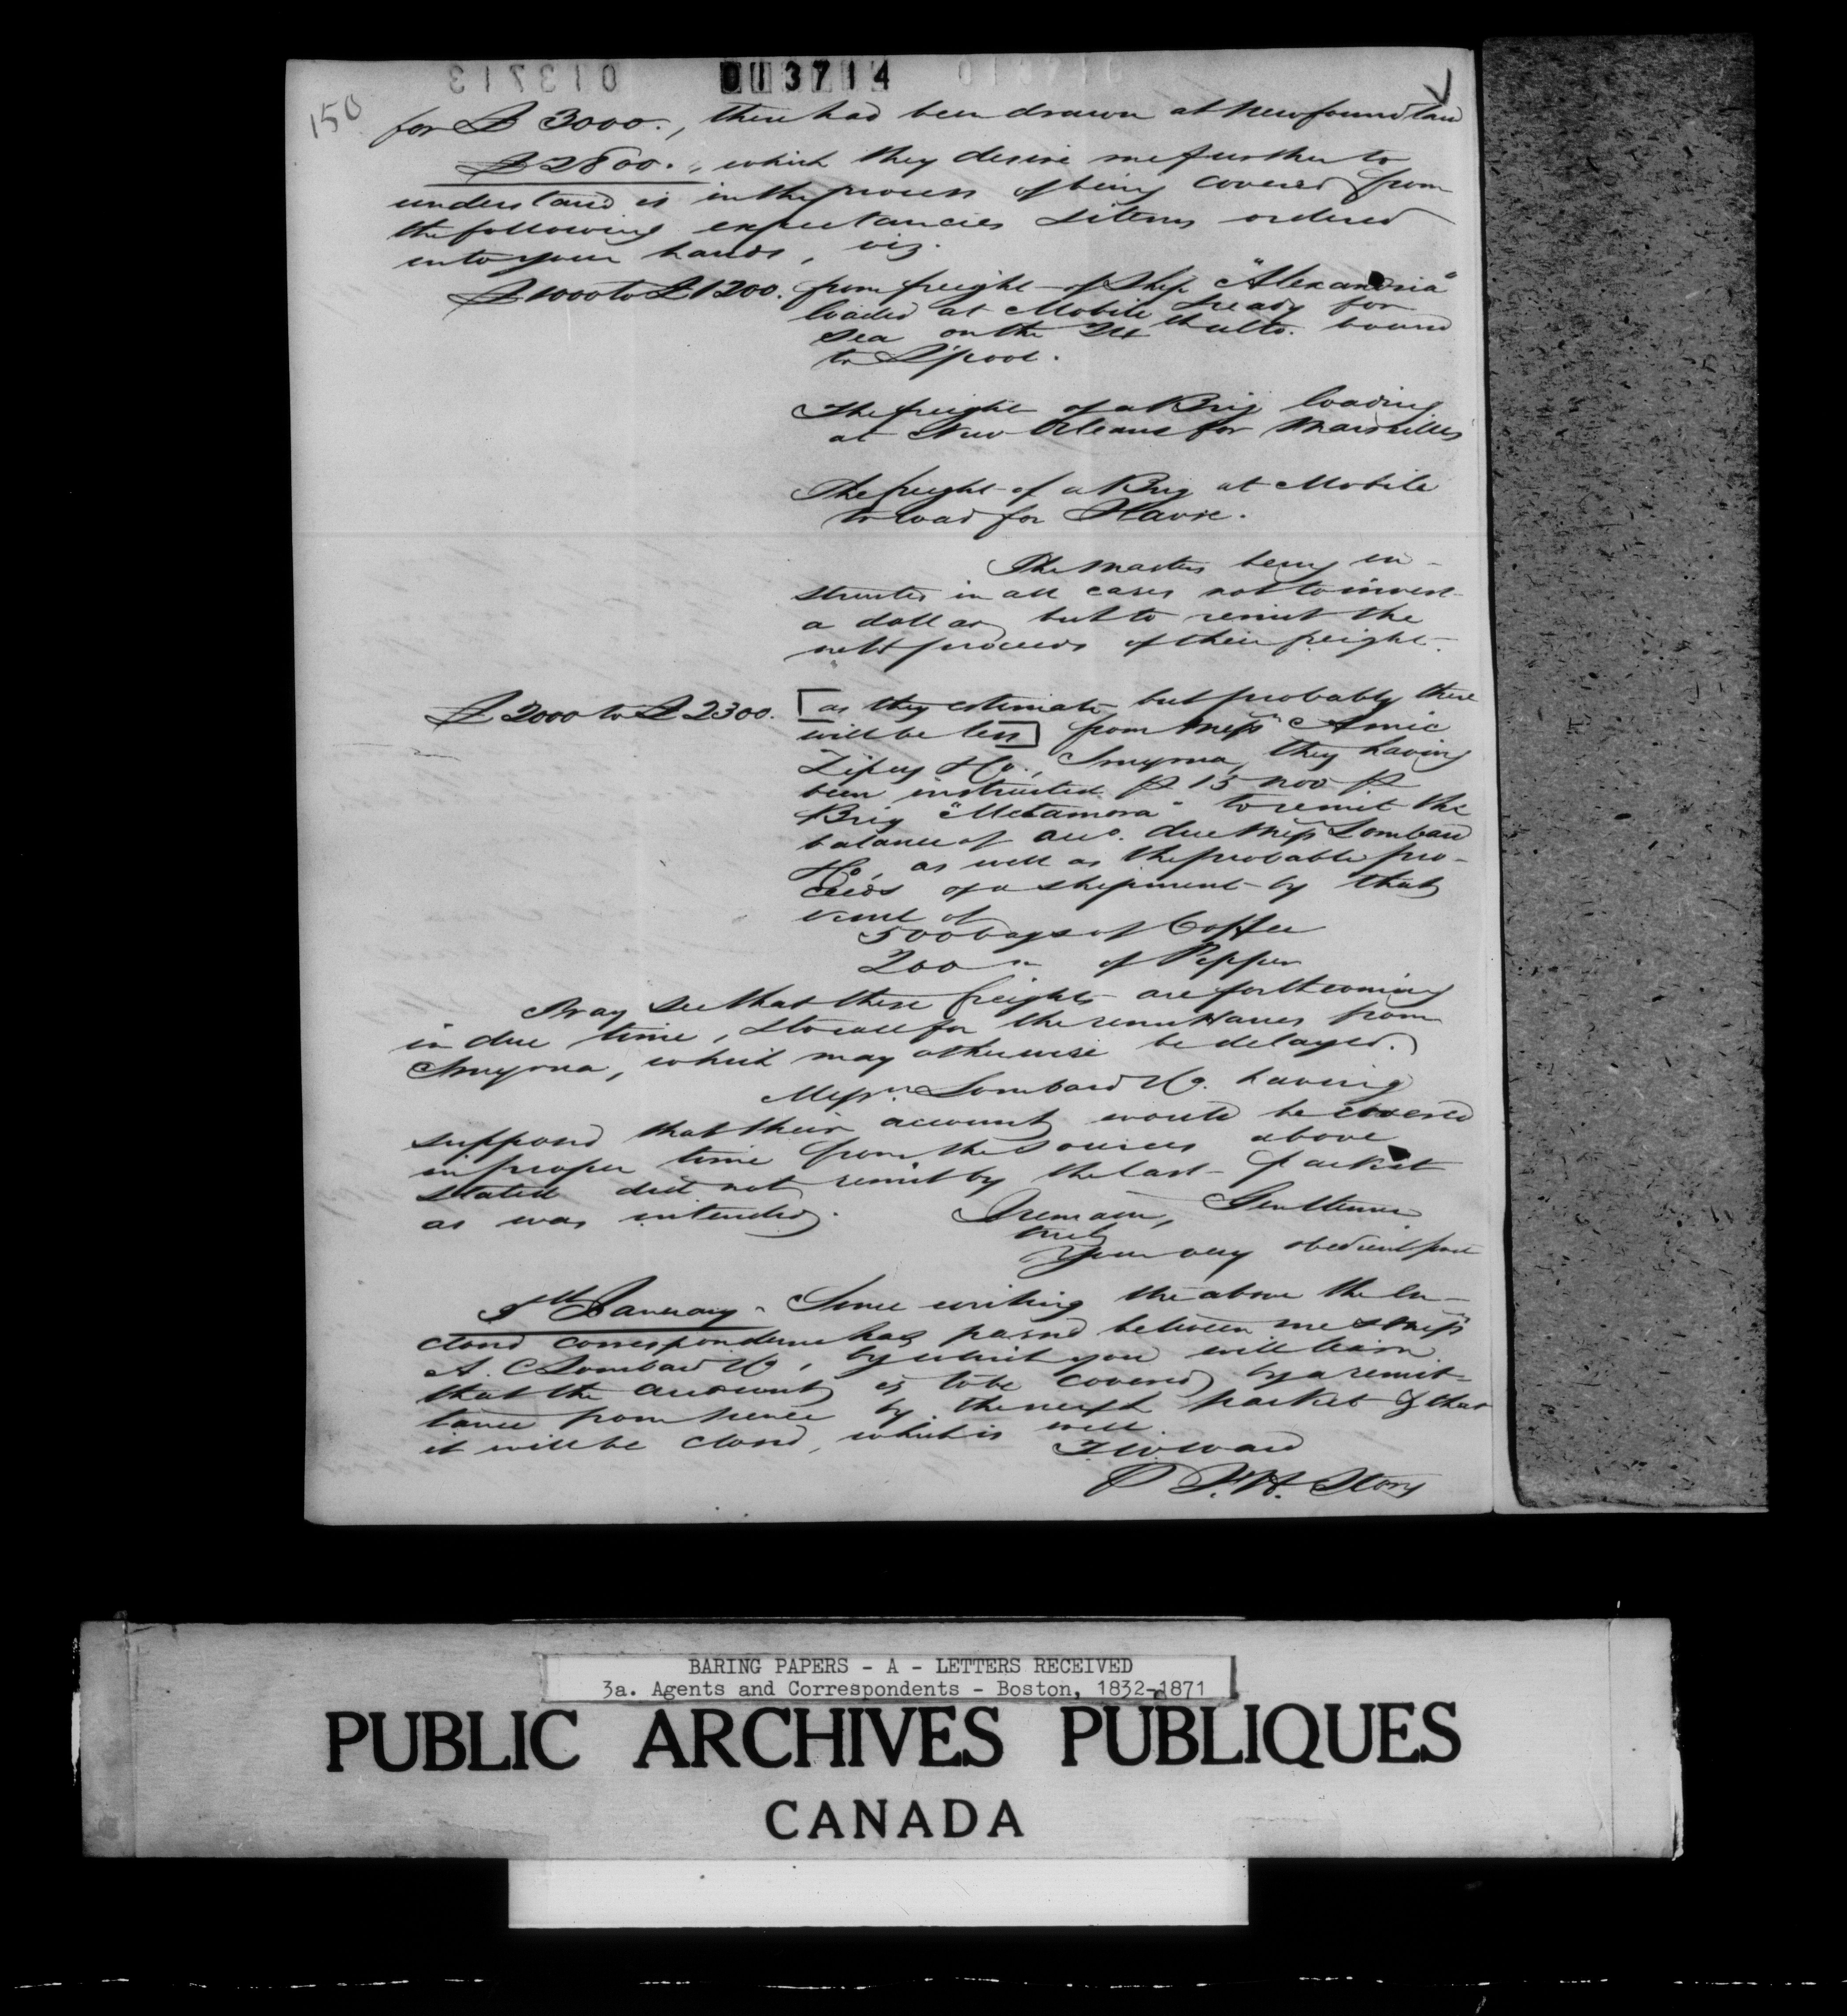 013714
150
for £ 3000., there had been drawn at Newfoundland
£ 2800., which they desire me further to
understand is in the process of being covered from
the following expectancies & items ordered
into your hands, viz.
£ 1000 to £ 1200. from freight of Ship "Alexandria"
loaded at Mobile & ready for
sea on the 24th ulto. bound
to L'pool.
The freight of a Brig loading
at New Orleans for Marseilles
The freight of a Brig at Mobile
to load for Havre.
The Masters being in-
structed in all cases not to invest
a dollar, but to remit the
nett proceeds of their freight.
£ 2000 to £ 2300. [as they estimate, but probably there
will be less] from Mess
Co., Smyrna, they having
been instructed 15 Nov
Brig "Metamora" to remit the
balance of acco. due Mess Lombard
& Co, as well as the probable pro-
ceeds of a shipment by that
vessel of
500 bags of Coffee
200 " of Pepper
Pray see that these freights are forthcoming
in due time, & to call for the remittances from
Smyrna, which may otherwise be delayed.
Messrs. Lombard & Co. having
supposed that their account would be covered
in proper time from the sources above
stated did not remit by the last packet
as was intended.
I remain, Gentlemen,
truly
Your very obedient servt
January. Since writing the above the en-
closed correspondence has passed between me & Mess
A. C Lombard & Co, by which you will learn
that the account is to be covered by a remit-
tance from hence by the next packet & that
it will be closed, which is well.
T. W. Ward
P
BARING PAPERS - A - LETTERS RECEIVED
3a. Agents and Correspondents - Boston, 1832-1871
PUBLIC ARCHIVES PUBLIQUES
CANADA